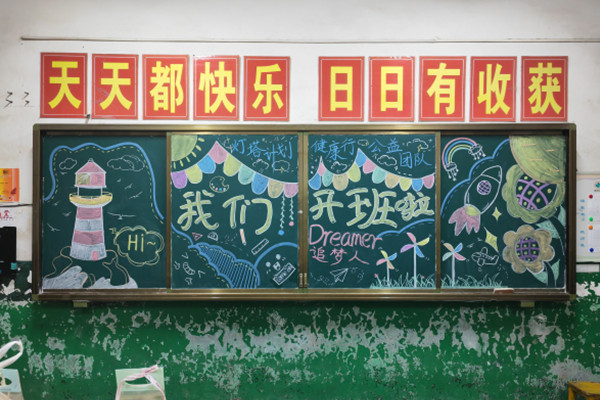 天天都快乐 日日有收获
灯塔计划 健康行 公益团队
我们 开班啦
Hi~
Dreamer
追梦人